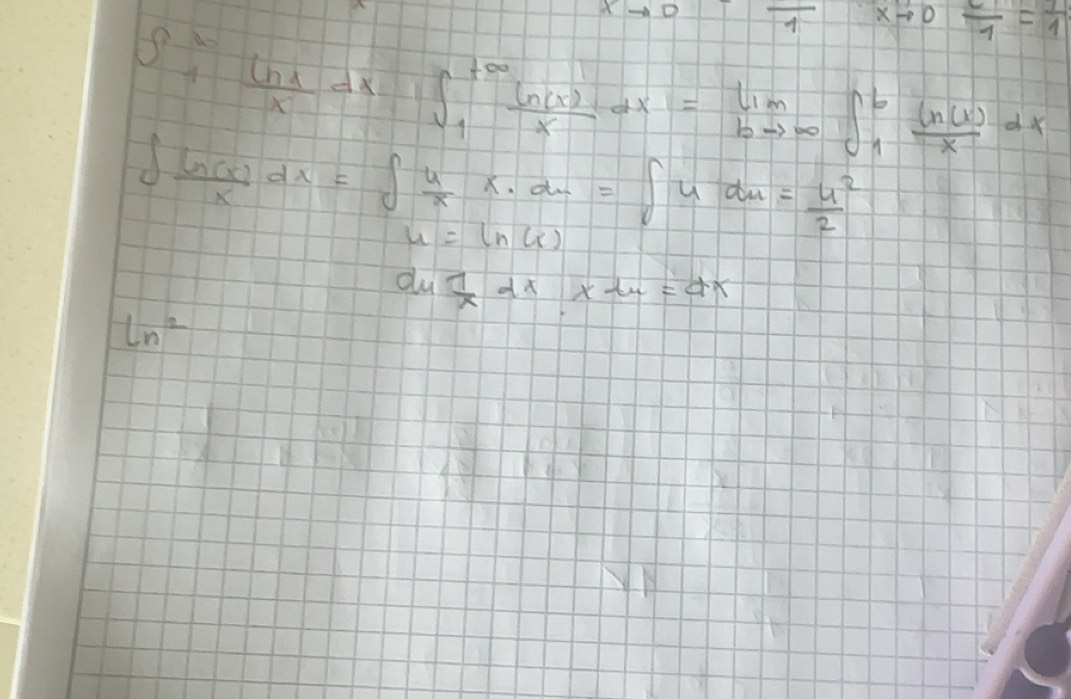 x→0 1 x→0 1 = 1
∫ 1 ∞ lnx/x dx ∫₁^+∞ ln(x)/x dx = lim b→∞ ∫₁^b ln(x)/x dx
∫ ln(x)/x dx = ∫ u/x x · du = ∫ u du = u²/2
u = ln(x)
du 1/x dx x du = dx
ln²